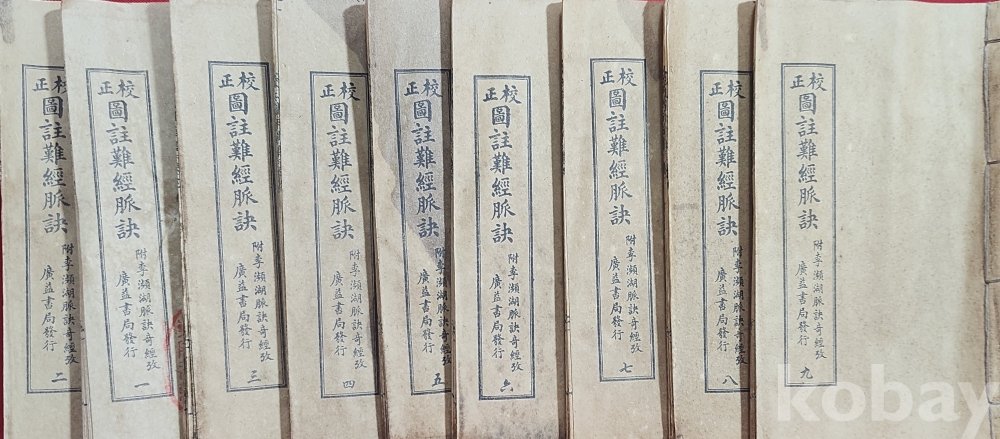 校正
圖註難經脈訣
附李瀕湖脈訣奇經攷
廣益書局發行
二
校正
圖註難經脈訣
附李瀕湖脈訣奇經攷
廣益書局發行
一
校正
圖註難經脈訣
附李瀕湖脈訣奇經攷
廣益書局發行
三
校正
圖註難經脈訣
附李瀕湖脈訣奇經攷
廣益書局發行
四
校正
圖註難經脈訣
附李瀕湖脈訣奇經攷
廣益書局發行
五
校正
圖註難經脈訣
附李瀕湖脈訣奇經攷
廣益書局發行
六
校正
圖註難經脈訣
附李瀕湖脈訣奇經攷
廣益書局發行
七
校正
圖註難經脈訣
附李瀕湖脈訣奇經攷
廣益書局發行
八
校正
圖註難經脈訣
附李瀕湖脈訣奇經攷
廣益書局發行
九
kobay